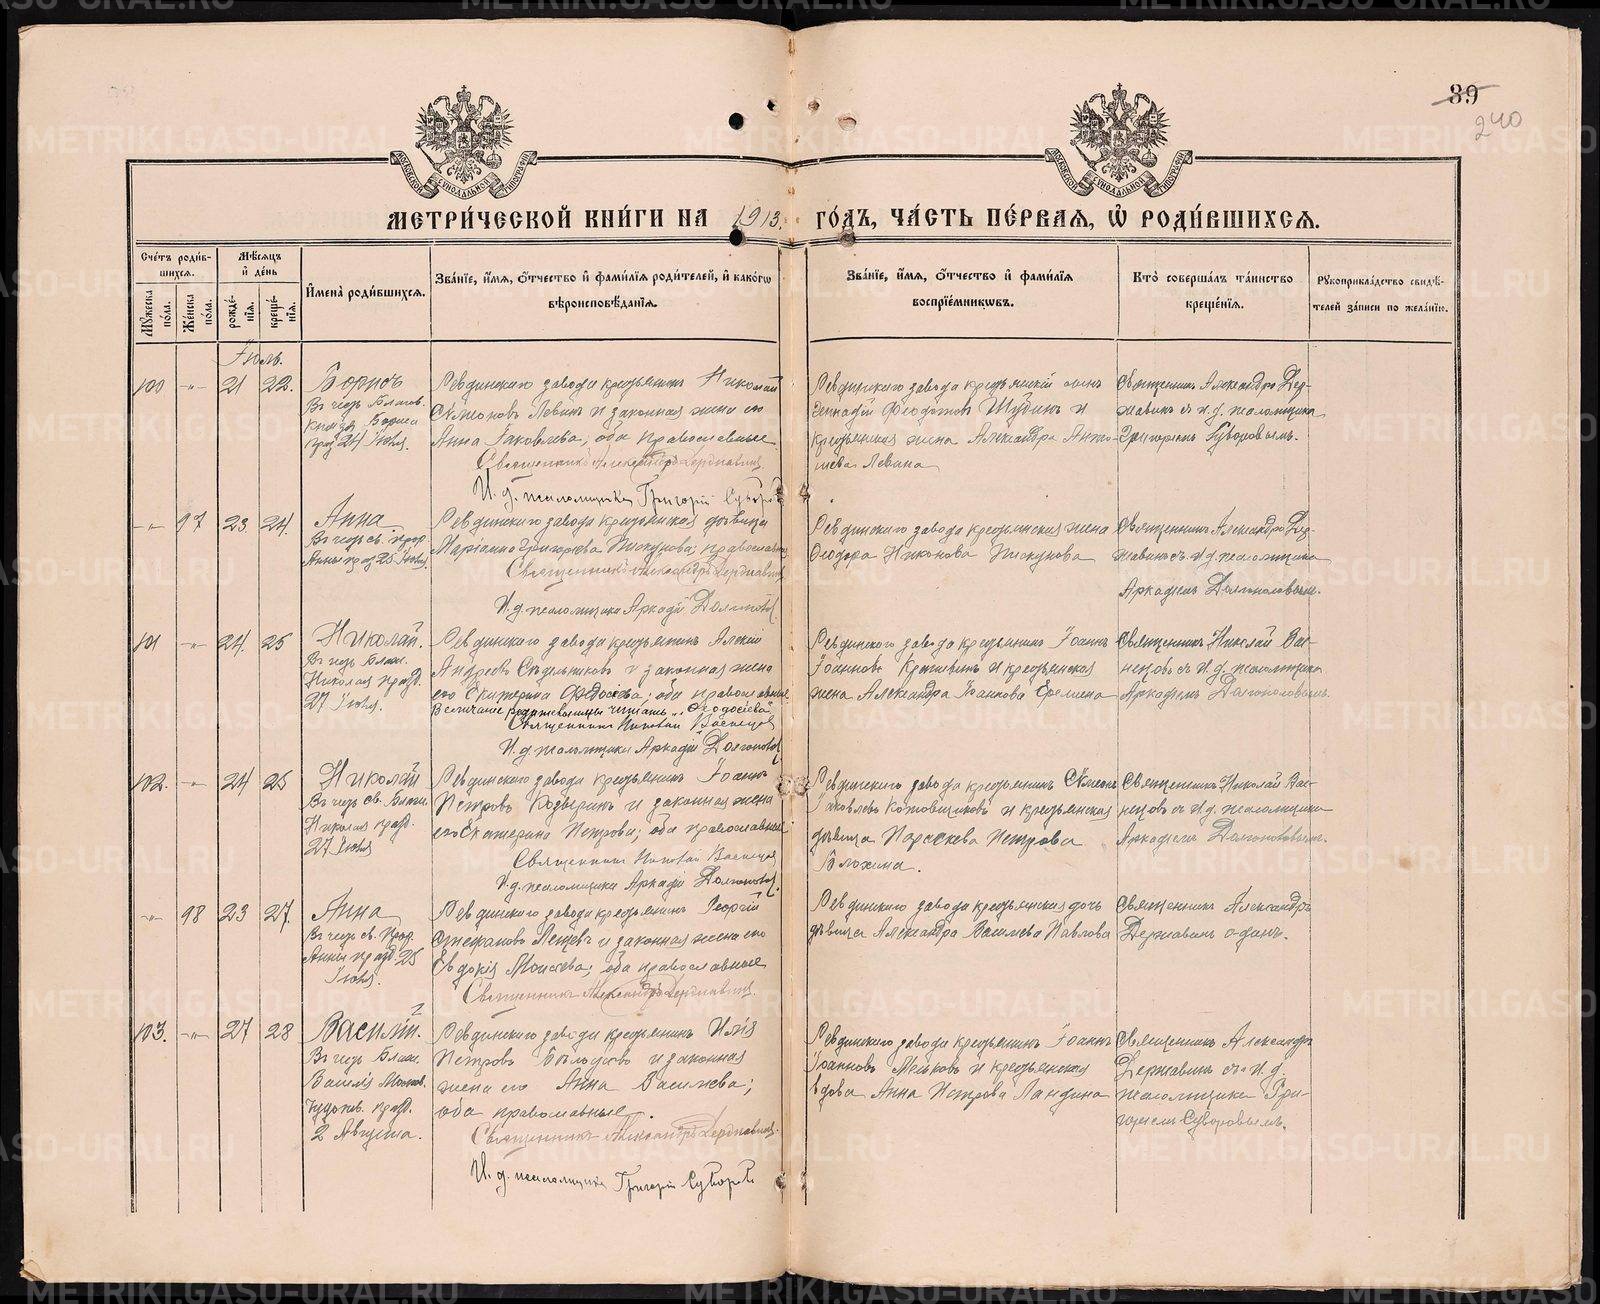 39
240
МОСКОВСКОЙ СѴНОДАЛЬНОЙ ТИПОГРАФІИ
МОСКОВСКОЙ СѴНОДАЛЬНОЙ ТИПОГРАФІИ
МЕТРИ́ЧЕСКОЙ КНИ́ГИ НА 1913. ГО́ДЪ, ЧА́СТЬ ПЕ́РВАЯ, Ѡ҆ РОДИ́ВШИХСЯ.
Сче́тъ роди́вшихся.
Мѣ́сяцъ и҆ де́нь
Му́жеска по́ла.
Же́нска по́ла.
рожде́нія.
креще́нія.
И҆мена̀ роди́вшихся.
Зва́ніе, и҆́мя, ѻ҆́тчество и҆ фами́лія роди́телей, и҆ како́гѡ вѣроисповѣ́данія.
Зва́ніе, и҆́мя, ѻ҆́тчество и҆ фами́лія воспріе́мникѡвъ.
Кто̀ соверша́лъ та́инство креще́нія.
Рꙋкоприкла́дство свидѣ́телей за́писи по жела́нію.
Іюль.
100 -„- 21 22.
Борисъ
Въ честь Благов.
Князя Бориса
пр. 24 Іюля.
Ревдинскаго завода крестьянинъ Николай
Симеоновъ Левинъ и законная жена его
Анна Іаковлева; оба православные
Священникъ Александръ Державинъ
И. д. псаломщика Григорій Суворовъ
Ревдинскаго завода крестьянскій сынъ
Геннадій Феодотовъ Шубинъ и
крестьянская жена Александра
Левина
Священникъ Александръ Дер-
жавинъ съ и. д. псаломщика
Григоріемъ Суворовымъ.
-„- 97 23 24.
Анна
Въ честь св. прор.
Анны пр. 25 Іюля.
Ревдинскаго завода крестьянская дѣвица
Маріамна Григорьева Пискунова; православная
Священникъ Александръ Державинъ
И. д. псаломщика Аркадій
Ревдинскаго завода крестьянская жена
Ѳеодора Никонова Пискунова
Священникъ Александръ Дер-
жавинъ съ и. д. псаломщика
Аркадіемъ
101 -„- 24. 25
Николай.
Въ честь Блаж.
Николая празд.
27 Іюля.
Ревдинскаго завода крестьянинъ Алексій
Андреевъ Сѣдельниковъ и законная жена
его Екатерина Ѳедосіева; оба православные
читать „Ѳеодосіева“
Священникъ Николай Васнецовъ
И. д. псаломщика Аркадій
Ревдинскаго завода крестьянинъ Іоаннъ
Іоанновъ и крестьянская
жена Александра Іоаннова Еремина
Священникъ Николай Вас-
нецовъ съ и. д. псаломщика
Аркадіемъ
102. -„- 24 25
Николай
Въ честь св. Блаж.
Николая празд.
27 Іюля
Ревдинскаго завода крестьянинъ Іоаннъ
Петровъ Козыринъ и законная жена
его Екатерина Петрова; оба православные
Священникъ Николай Васнецовъ
И. д. псаломщика Аркадій
Ревдинскаго завода крестьянинъ Симеонъ
Іаковлевъ Котовщиковъ и крестьянская
дѣвица Параскева Петрова
Блохина.
Священникъ Николай Вас-
нецовъ съ и. д. псаломщика
Аркадіемъ
-„- 98 23 27.
Анна
Въ честь св. Прор.
Анны празд. 25
Іюля.
Ревдинскаго завода крестьянинъ Георгій
Стефановъ и законная жена его
Евдокія Моисеева; оба православные
Священникъ Александръ Державинъ.
Ревдинскаго завода крестьянская дочь
дѣвица Александра Васильева Павлова
Священникъ Александръ
Державинъ одинъ.
103. -„- 27 28
Василій.
Въ честь Блаж.
Василія Москов.
Чудотв. празд.
2 Августа.
Ревдинскаго завода крестьянинъ Илія
Петровъ и законная
жена его Анна Васильева;
оба православные.
Священникъ Александръ Державинъ.
И. д. псаломщика Григорій Суворовъ
Ревдинскаго завода крестьянинъ Іоаннъ
Іоанновъ и крестьянская
вдова Анна Петрова
Священникъ Александръ
Державинъ съ и. д.
псаломщика Гри-
горіемъ Суворовымъ.
METRIKI.GASO-URAL.RU